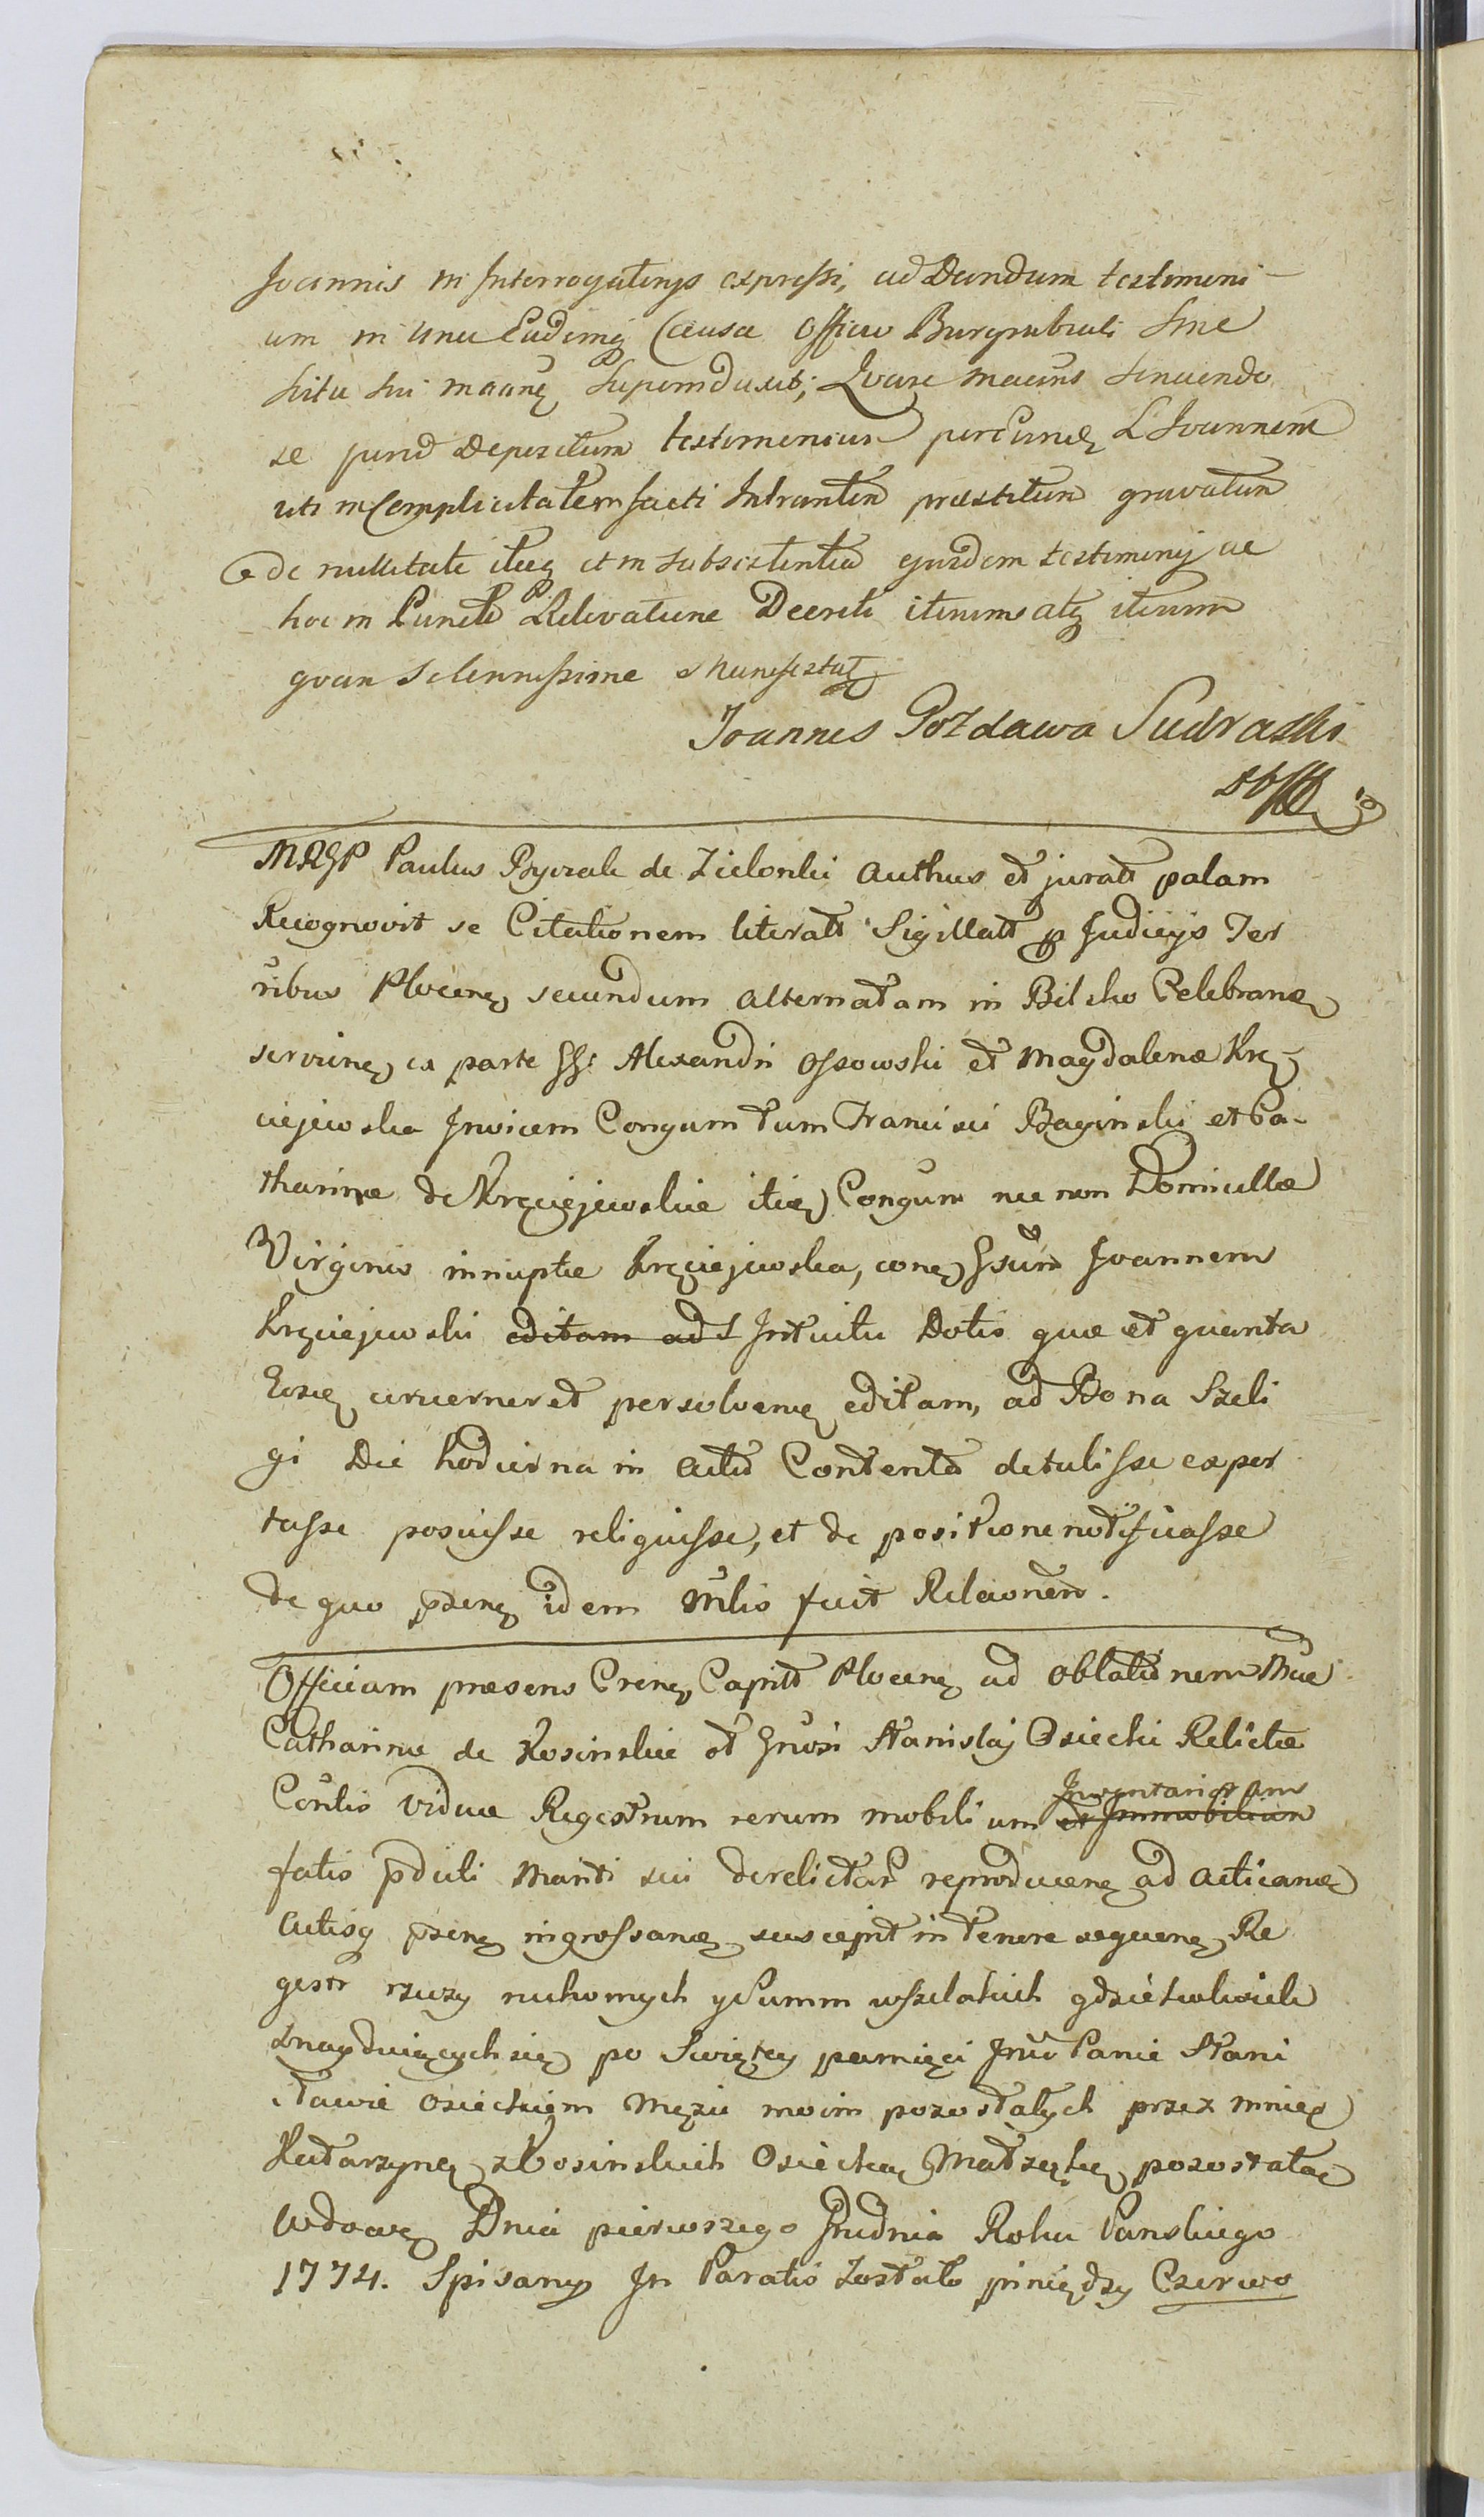 Joannis in Interrogatorijs expressi, ad Dandum testimoni-
um in una Eademq Causa Officio Burgrabiali sine
situ sui superinduxit; Quare
se juxta Depositum testimonium Joannem
uti in Complicitatem facti Intrantem praestitum gravatum
de nullitate itaq et in subsistentia ejusdem testimonij ac
hoc in Puncto Relevatione Decreti iterum atq iterum
qvam solennissime Manifestatq
Joannes Gozdawa Sudraski
MRGP Paulus Pyczak de Zielonki Authus et juratt palam
Recognovit se Citationem literatt Sigillatt p Judicijs Ter
ribus Plocen secundum alternatam in Bilsko Celebran
servien ex parte GG: Alexandri Ossowski et Magdalenae Krę-
ciejewska Invicem Conjugum tum Francisci Baginski et Ca-
tharinae de Kręciejewskie itid Conjugum nec non Domicellae
Virginis innuptae Kręciejewska, con Gsum Joannem
Kręciejewski editam ad S Intuitu Dotis quae et quanta
Eosd eveneret persolven editam, ad Bona Szeli
gi Die hodierna in actu Contenta detulisse expor
tasse posuisse reliquisse, et de positione notificasse
de quo psens idem Mlis fecit Relaonem.
Officium praesens Crens Capitt Plocen ad oblationem Mcae
Catharinae de Kosinskie ot Gnosi Stanislaj Osiecki Relictae
Contis viduae Regestrum rerum mobilium Inventarium et Immobilium
fatis pduli Mariti sui derelictar reproducen ad acticand
Actisq psens ingrossand suscepit in tenore sequen Re
gestr rzeczy ruchomych y Summ wszelakich gdziekolwiek
znayduiących się po Swiętey pamięci Jmci Panie Stani
sławie Osieckiem Mężu moim pozostałych przez mnie
Katarzynę z Kosinskich Osiecką Małżąkę pozostałą
Wdowę Dnia pierwszego Grudnia Roku Panskiego
1774. Spisany In Paratis zostało piniędzy Czerwo